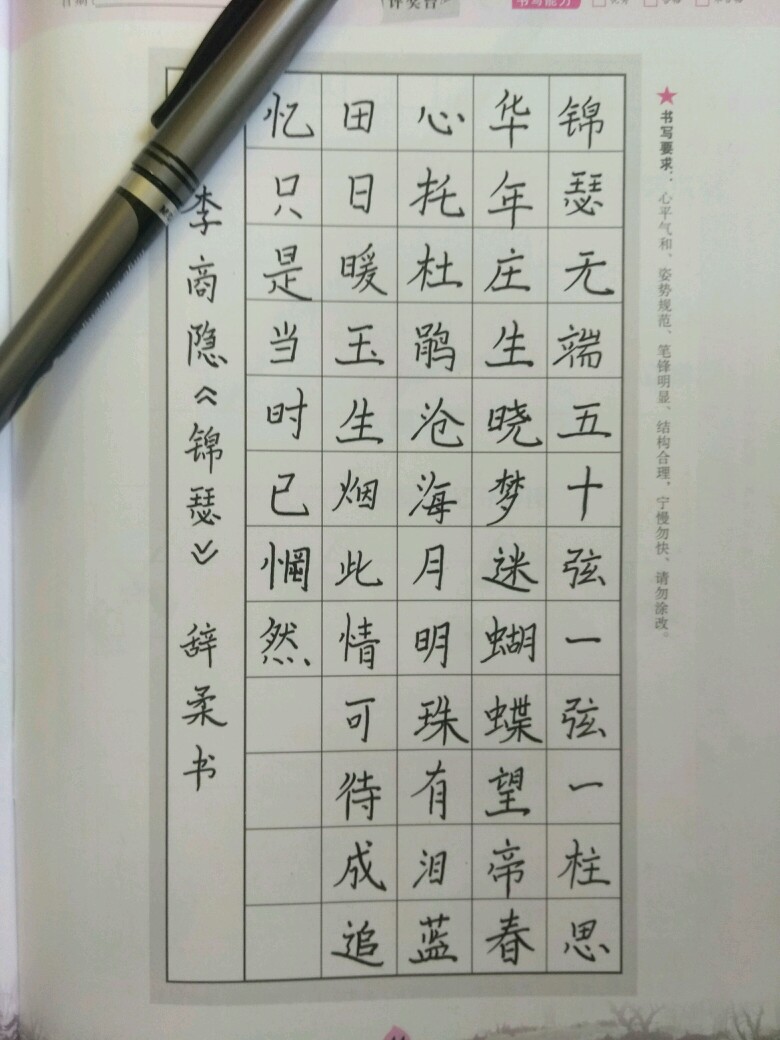 书写能力
★书写要求：心平气和、姿势规范、笔锋明显、结构合理，宁慢勿快、请勿涂改。
锦瑟无端五十弦一弦一柱思
华年庄生晓梦迷蝴蝶望帝春
心托杜鹃沧海月明珠有泪蓝
田日暖玉生烟此情可待成追
忆只是当时已惘然
李商隐《锦瑟》 辞柔书